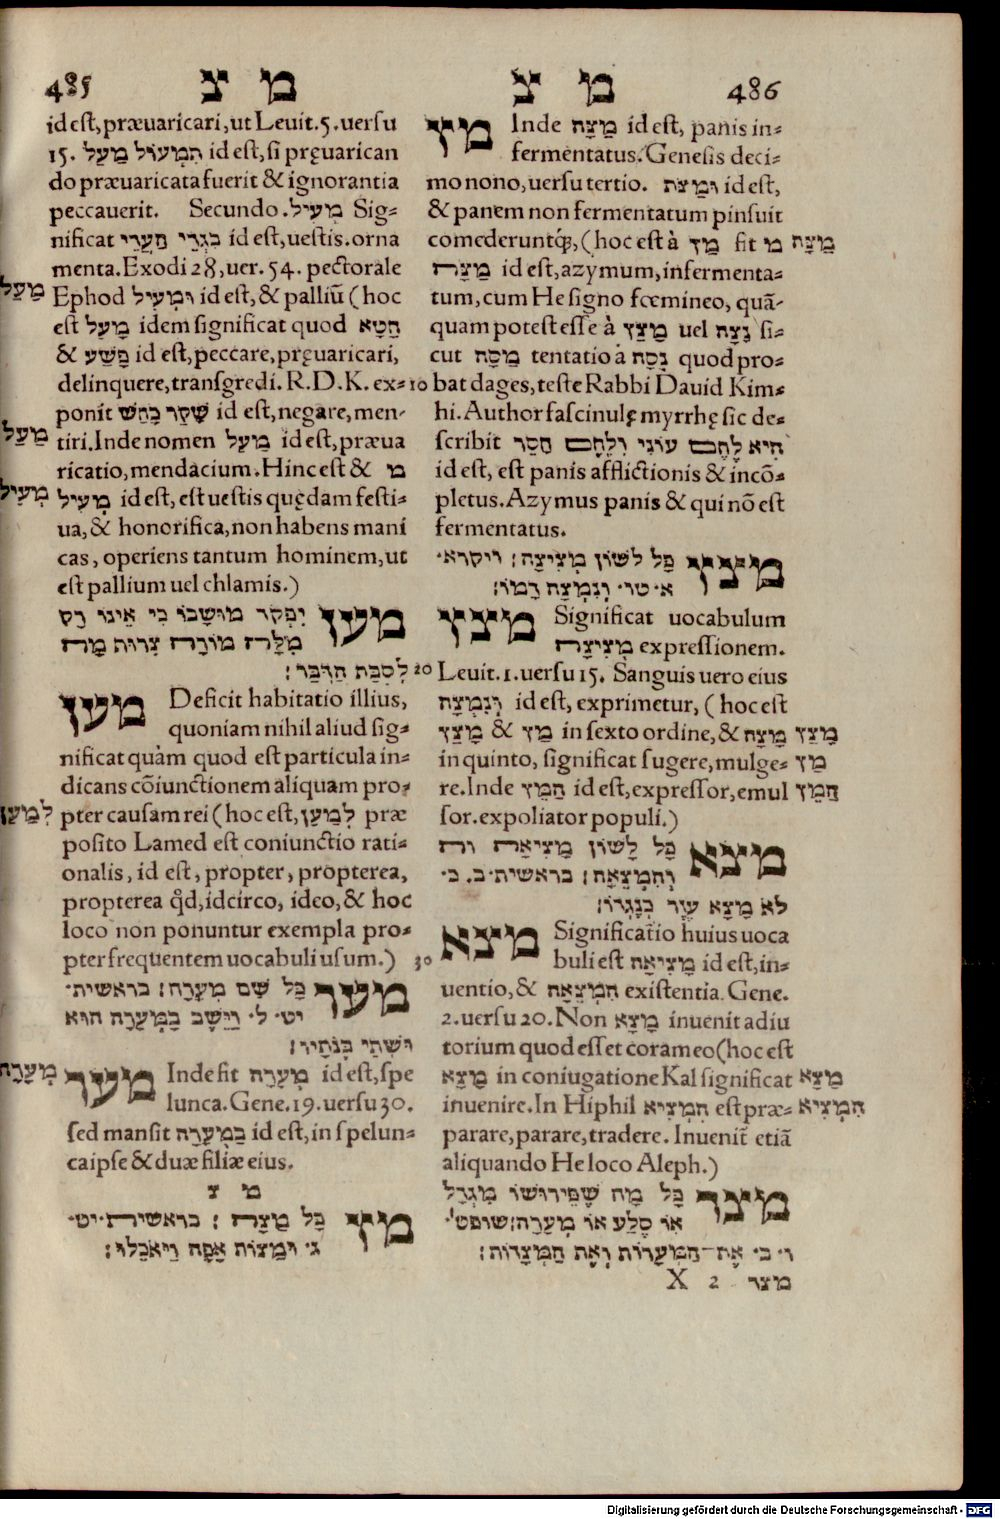 485 מ צ
id est, præuaricari, ut Leuit. 5. uersu
15. המעול מעל id est, si pręuarican
do præuaricata fuerit & ignorantia
peccauerit. Secundo. מעיל Sig-
nificat בגדי id est, uestis. orna
menta. Exodi 28, uer. 54. pectorale
מעל
Ephod ומעיל id est, & palliū (hoc
est מָעַל idem significat quod חטא
& פשע id est, peccare, pręuaricari,
delinquere, transgredi. R. D. K. ex- 10
ponit שקר כחש id est, negare, men-
מעל
tiri. Inde nomen מעל id est, præua
ricatio, mendacium. Hinc est & מ
מעיל
מעיל id est, est uestis quędam festi-
ua, & honorifica, non habens mani
cas, operiens tantum hominem, ut
est pallium uel chlamis.)
מען יפקד מושבו כי אינו רק
מלה מורה צרות מה
לסבת הדבר: 20
מען Deficit habitatio illius,
quoniam nihil aliud sig-
nificat quàm quod est particula in-
dicans cōiunctionem aliquam pro-
למען
pter causam rei (hoc est, למען præ
posito Lamed est coniunctio rati-
onalis, id est, propter, propterea,
propterea qd, idcirco, ideo, & hoc
loco non ponuntur exempla pro-
pter frequentem uocabuli usum.) 30
מער כל שם מערה: בראשית.
יט. ל. וישב במערה הוא
ושתי בנתיו:
מערה
מער Inde fit מערה id est, spe
lunca. Gene. 19. uersu 30.
sed mansit במערה id est, in spelun-
ca ipse & duæ filiæ eius.
מ צ
מץ כל מצה: בראשית. יט.
ג. ומצות אפה ויאכלו:
מ צ 486
מץ Inde מצה id est, panis in-
fermentatus. Genesis deci-
mo nono, uersu tertio. ומצת id est,
& panem non fermentatum pinsuit
comederuntq;, (hoc est à מץ fit מ
מצה
מצה id est, azymum, infermenta-
tum, cum He signo fœmineo, quā-
quam potest esse à מצץ uel נצה si-
cut מסה tentatio à נסה quod pro-
bat dages, teste Rabbi Dauid Kim-
hi. Author fasciculę myrrhę sic de-
scribit היא לחם עוני ולחם חסר
id est, est panis afflictionis & incō-
pletus. Azymus panis & qui nō est
fermentatus.
מצץ כל לשון מציצה: ויקרא.
א. טו. ונמצה דמו:
מצץ Significat uocabulum
מציצה expressionem.
Leuit. 1. uersu 15. Sanguis uero eius
ונמצה id est, exprimetur, (hoc est
מצץ & מץ in sexto ordine, & מצה
מצץ
in quinto, significat sugere, mulge-
מץ
re. Inde המץ id est, expressor, emul
המץ
sor. expoliator populi.)
מצא כל לשון מציאה וה
והמצאה: בראשית. ב. כ.
לא מצא עזר כנגדו:
מצא Significatio huius uoca
buli est מציאה id est, in-
uentio, & המצאה existentia. Gene.
2. uersu 20. Non מצא inuenit adiu
torium quod esset coram eo (hoc est
מצא in coniugatione Kal significat
מצא
inuenire. In Hiphil המציא est præ-
המציא
parare, parare, tradere. Inuenit̄ etiā
aliquando He loco Aleph.)
מצד כל מה שפירושו מגדל
או סלע או מערה: שופט'
ו. ב. את המערות ואת המצדות:
X 2 מצר
Digitalisierung gefördert durch die Deutsche Forschungsgemeinschaft - DFG